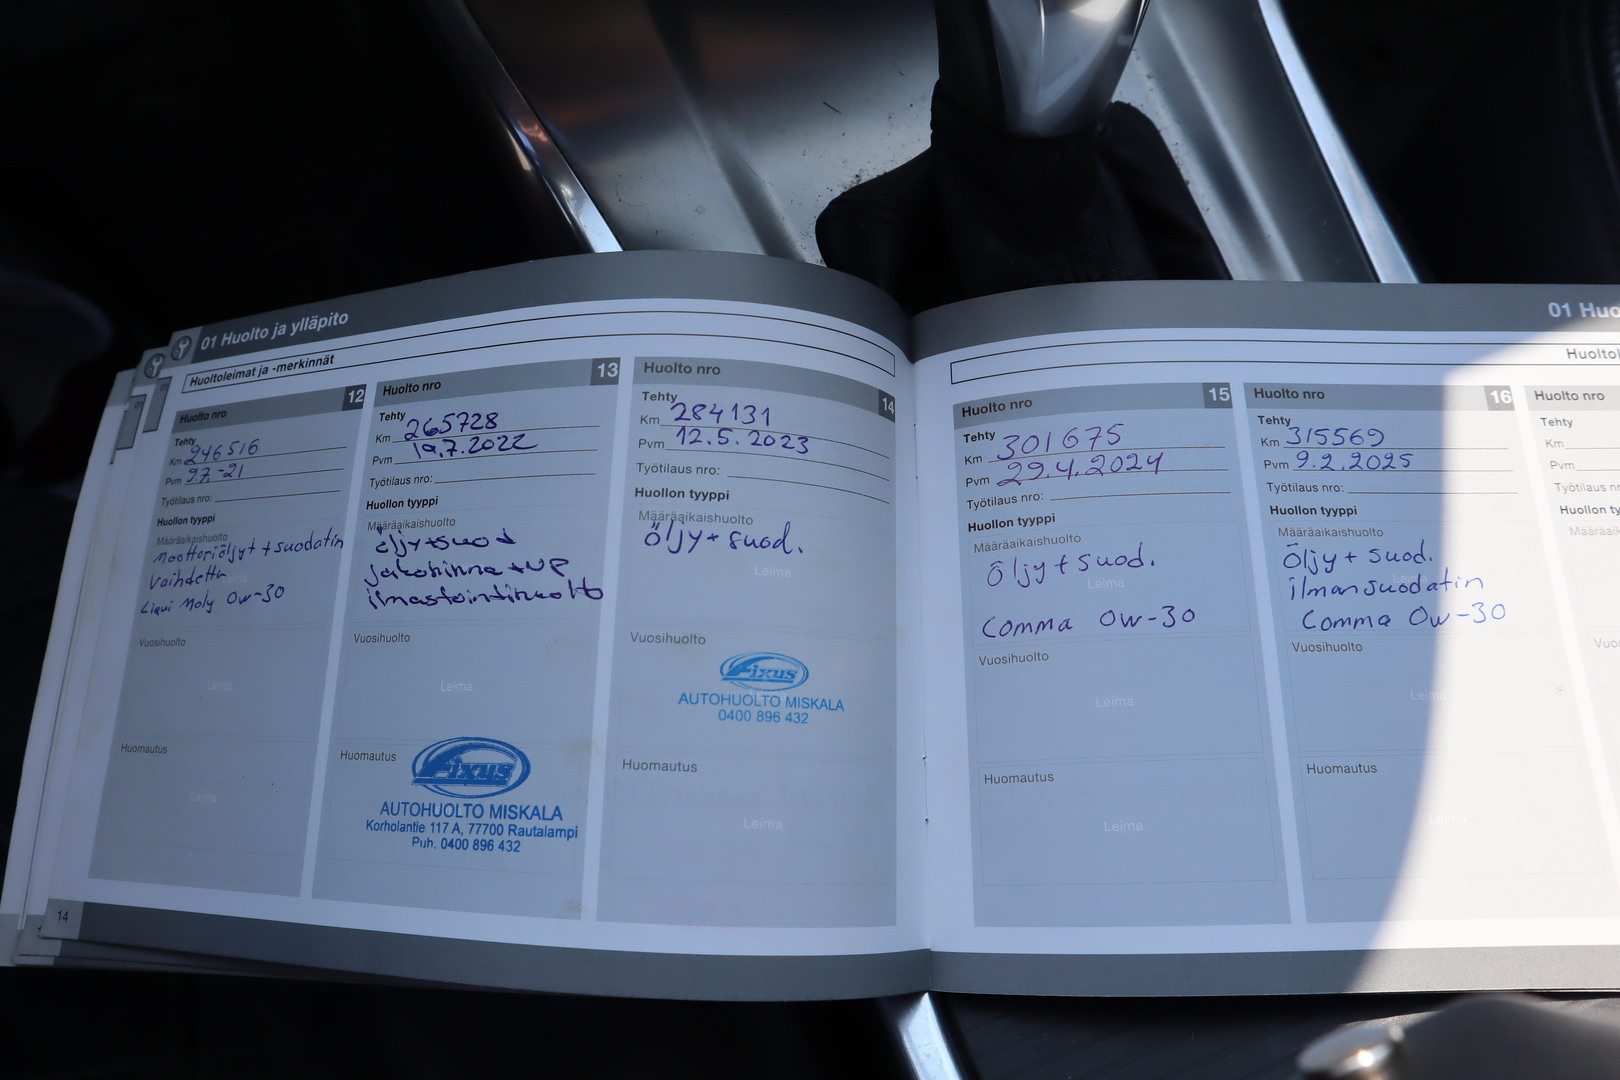 01 Huolto ja ylläpito
Huoltoleimat ja -merkinnät
Huolto nro 12
Tehty
Km 246516
Pvm 9.7.-21
Työtilaus nro:
Huollon tyyppi
Määräaikaishuolto
Moottoriöljyt + suodatin
Vaihdettu
Liqui Moly 0w-30
Vuosihuolto
Leima
Huomautus
Leima
14
Huolto nro 13
Tehty
Km 265728
Pvm 19.7.2022
Työtilaus nro:
Huollon tyyppi
Määräaikaishuolto
öljy+suod
jakohihna + VP
ilmastointihuolto
Vuosihuolto
Leima
Huomautus
Fixus
AUTOHUOLTO MISKALA
Korholantie 117 A, 77700 Rautalampi
Puh. 0400 896 432
Huolto nro 14
Tehty
Km 284131
Pvm 12.5.2023
Työtilaus nro:
Huollon tyyppi
Määräaikaishuolto
öljy + suod.
Leima
Vuosihuolto
Fixus
AUTOHUOLTO MISKALA
0400 896 432
Huomautus
Leima
01 Huo
Huoltol
Huolto nro 15
Tehty
Km 301675
Pvm 29.4.2024
Työtilaus nro:
Huollon tyyppi
Määräaikaishuolto
öljy + suod.
Leima
Comma 0w-30
Vuosihuolto
Leima
Huomautus
Leima
Huolto nro 16
Tehty
Km 315569
Pvm 9.2.2025
Työtilaus nro:
Huollon tyyppi
Määräaikaishuolto
Öljy + suod.
ilmansuodatin
Comma 0w-30
Vuosihuolto
Leima
Huomautus
Leima
Huolto nro
Tehty
Km
Pvm
Työtilaus nr
Huollon ty
Määräaikaish
Vuos